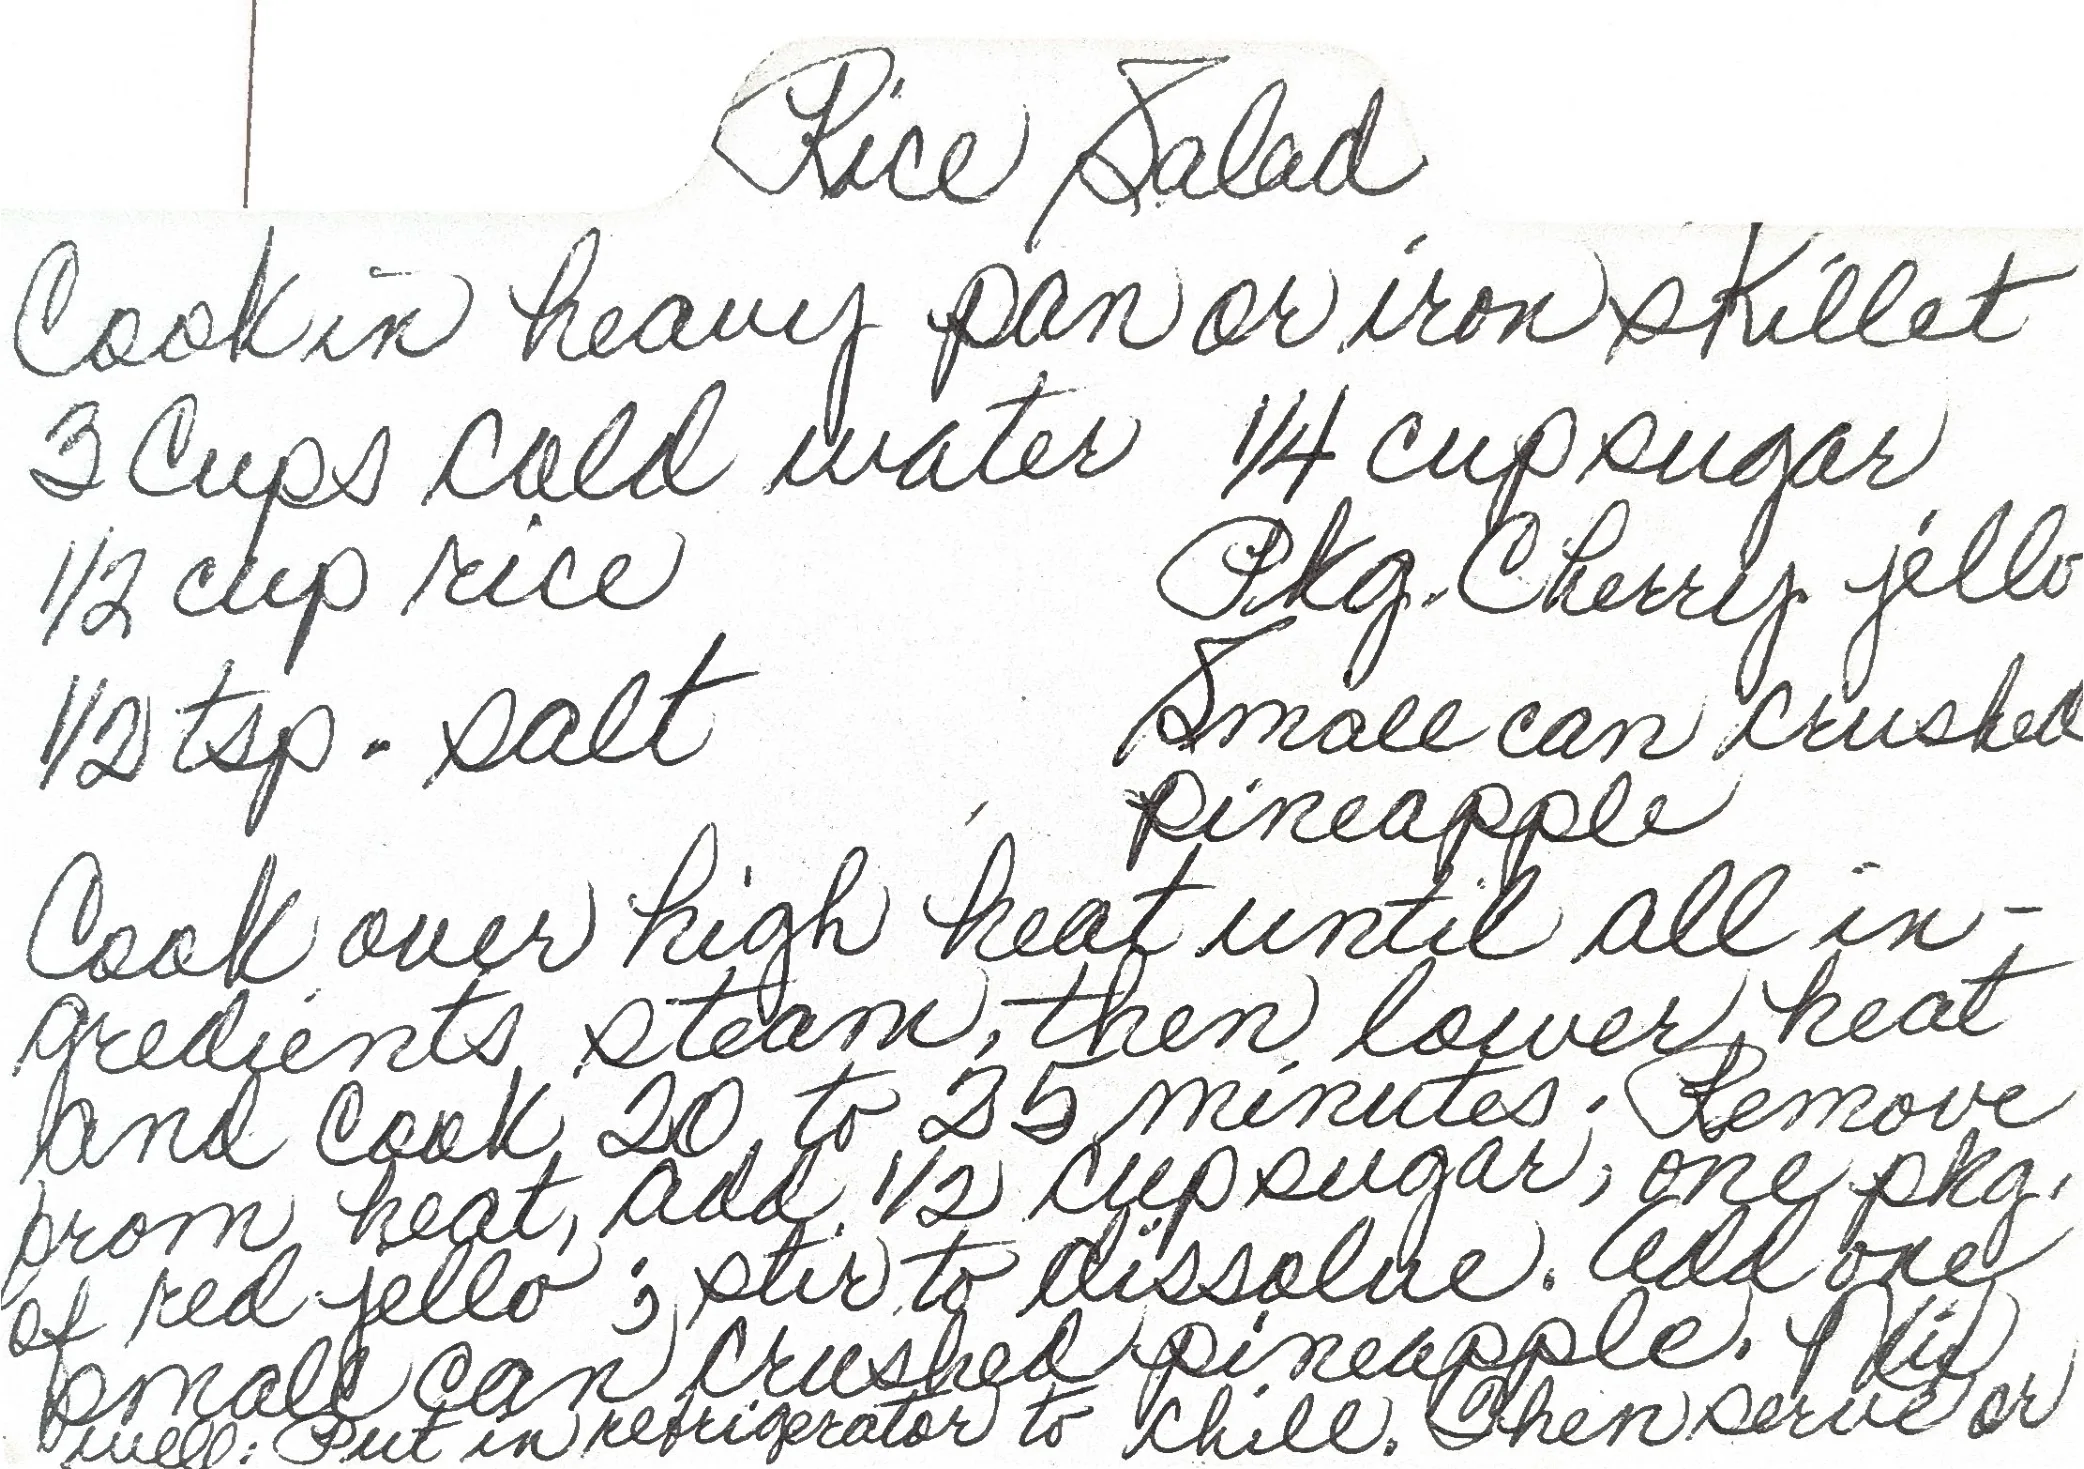 Rice Salad
Cook in heavy pan or iron skillet
3 Cups cold water 1/4 cup sugar
1/2 cup rice Pkg. Cherry jello
1/2 tsp. salt Small can crushed
pineapple
Cook over high heat until all in-
gredients steam, then lower heat
and cook 20 to 25 minutes; Remove
from heat, add 1/2 cup sugar, one pkg.
of red jello; stir to dissolve. Add one
small can crushed pineapple. Mix
well. Put in refrigerator to chill. Then serve or